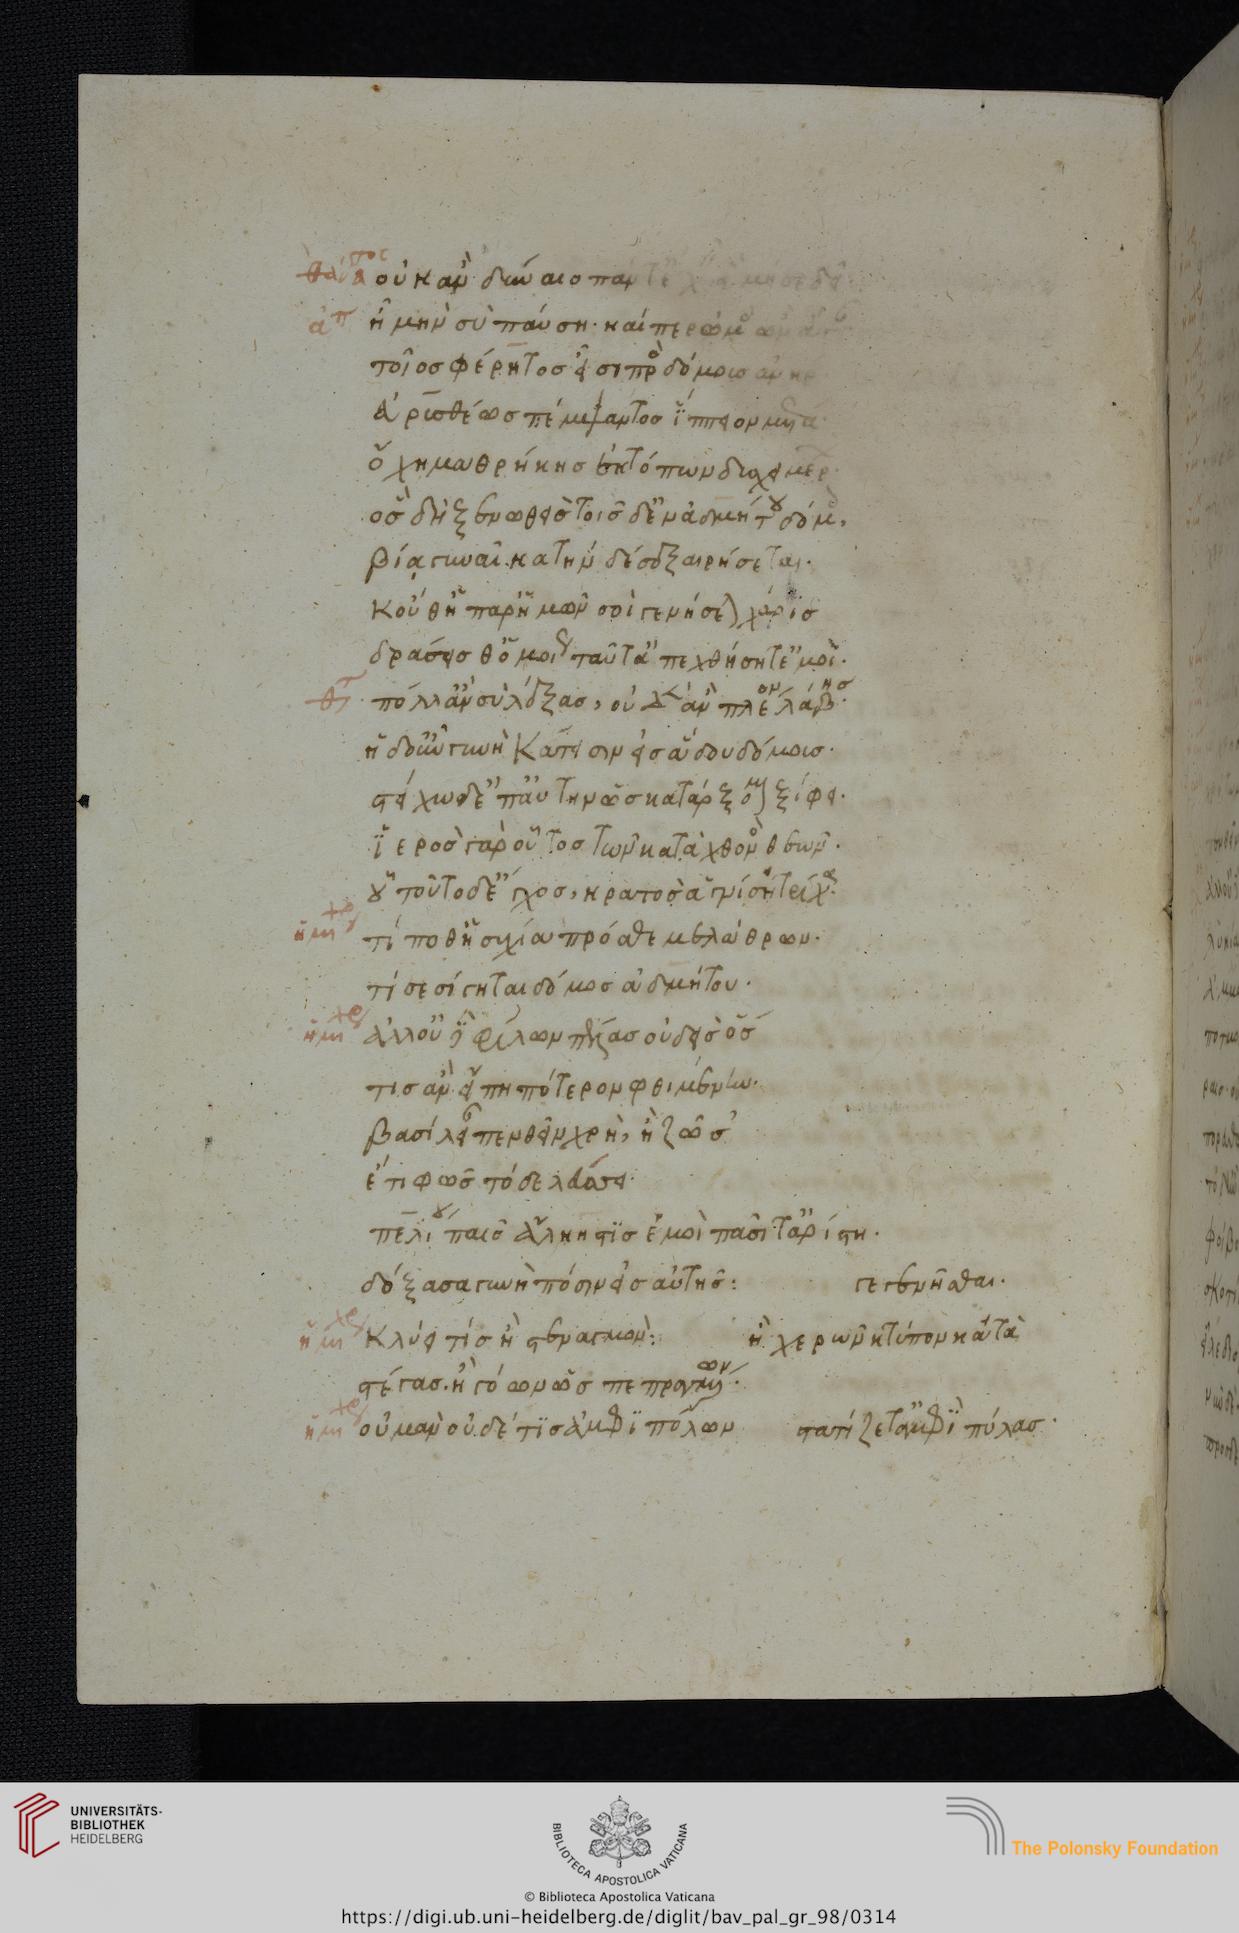 θάνατος οὐκ ἂν δύναιο πάντ' ἔχειν ἃ μή σε δεῖ
ἀπ ἦ μὴν σὺ παύση· καίπερ ὠμὸς ὢν ἄγαν
τοῖος φέρητος εἶσι πρὸς δόμους ἀνὴρ
εὐρισθέως πέμψαντος ἵππειον μετὰ
ὄχημα θρήκης ἐκ τόπων δυσχειμέρων
ὃς δὴ ξενωθεὶς τοῖσδ' ἐν ἀδμήτου δόμοις,
βίᾳ γυναῖκα τήνδε σ' ἐξαιρήσεται·
κοὔθ' ἡ παρ' ἡμῶν σοὶ γενήσεται χάρις
δράσεις θ' ὁμοίως ταῦτ' ἀπεχθήση τ' ἐμοί·
θτ πόλλ' ἂν σὺ λέξας, οὐδὲν ἂν πλέον λάβης·
ἡ δ' οὖν γυνὴ κάτεισιν εἰς ἅδου δόμους·
στείχω δ' ἐπ' αὐτὴν ὡς κατάρξομαι ξίφει·
ἱερὸς γὰρ οὗτος τῶν κατὰ χθονὸς θεῶν·
οὗ τοῦτ' ὅδ' ἔγχος, κρατὸς ἁγνίση τρίχα·
ἡμιχο τί ποθ' ἡσυχία πρόσθε μελάθρων·
τί σεσίγηται δόμος ἀδμήτου·
ἡμιχο ἀλλ' οὐδὲ φίλων πέλας οὐδεὶς ὅσ
τις ἂν εἴπη πότερον φθιμένην·
βασίλειαν πενθεῖν χρὴ, ἢ ζῶσ'
ἔτι φῶς τόδε λεύσσει
πελίου παῖς ἄλκηστις ἐμοὶ πᾶσί τ' ἀρίστη·
δόξασα γυνὴ πόσιν εἰς αὑτῆς: γεγενῆσθαι·
ἡμιχο κλύει τίς ἢ στεναγμὸν: ἢ χερῶν κτύπον κατὰ
στέγας· ἢ γόων ὡς πεπραγμένων·
ἡμιχο οὐ μὰν οὐδέ τις ἀμφιπόλων στατίζετ' ἀμφὶ πύλας·
UNIVERSITÄTS-
BIBLIOTHEK
HEIDELBERG
BIBLIOTECA APOSTOLICA VATICANA
The Polonsky Foundation
© Biblioteca Apostolica Vaticana
https://digi.ub.uni-heidelberg.de/diglit/bav_pal_gr_98/0314